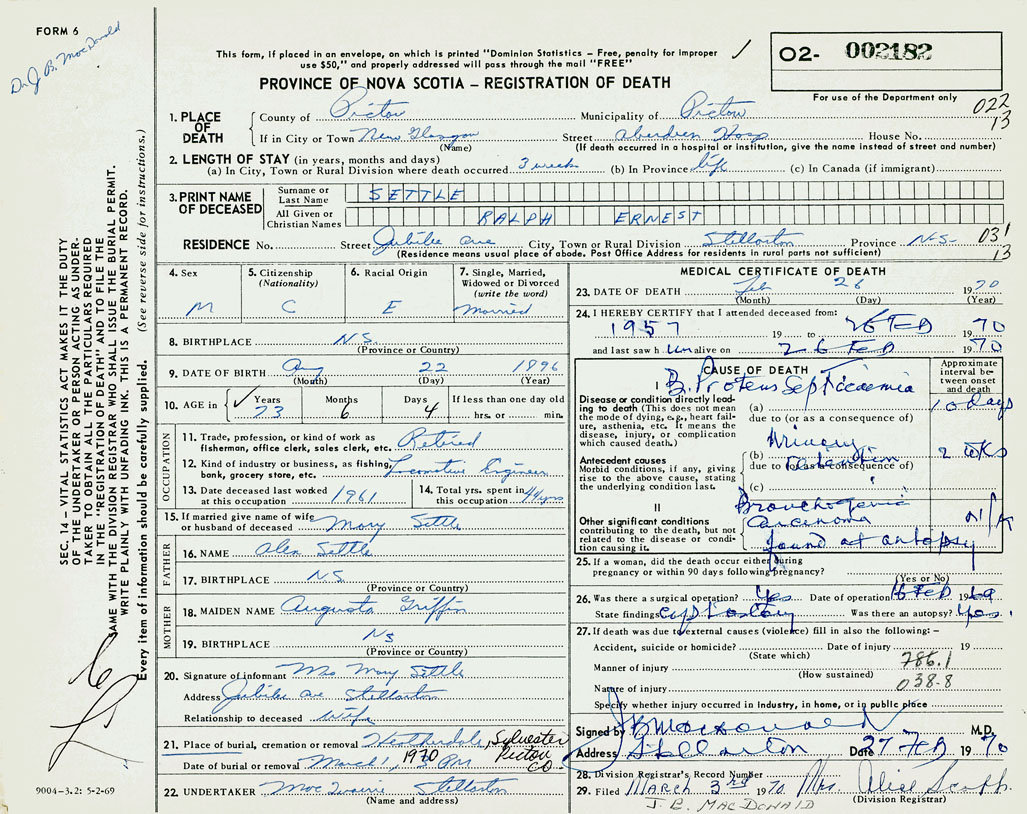 FORM 6
Dr. J. B. MacDonald
This form, if placed in an envelope, on which is printed "Dominion Statistics – Free, penalty for improper
use $50," and properly addressed will pass through the mail "FREE"
PROVINCE OF NOVA SCOTIA – REGISTRATION OF DEATH
02- 002182
For use of the Department only
022
13
1. PLACE OF DEATH
County of Pictou Municipality of Pictou
If in City or Town New Glasgow Street Aberdeen Hosp House No.
(Name) (If death occurred in a hospital or institution, give the name instead of street and number)
2. LENGTH OF STAY (in years, months and days)
(a) In City, Town or Rural Division where death occurred 3 weeks (b) In Province life (c) In Canada (if immigrant)
3. PRINT NAME OF DECEASED
Surname or Last Name SETTLE
All Given or Christian Names RALPH ERNEST
RESIDENCE No. Street Jubilee Ave City, Town or Rural Division Stellarton Province N.S. 031
(Residence means usual place of abode. Post Office Address for residents in rural parts not sufficient) 13
4. Sex
M
5. Citizenship
(Nationality)
C
6. Racial Origin
E
7. Single, Married,
Widowed or Divorced
(write the word)
Married
8. BIRTHPLACE N.S.
(Province or Country)
9. DATE OF BIRTH Aug 22 1896
(Month) (Day) (Year)
10. AGE in Years Months Days If less than one day old
73 6 4 hrs. or min.
OCCUPATION
11. Trade, profession, or kind of work as
fisherman, office clerk, sales clerk, etc. Retired
12. Kind of industry or business, as fishing,
bank, grocery store, etc. Locomotive Engineer
13. Date deceased last worked
at this occupation 1961
14. Total yrs. spent in
this occupation 44 yrs
15. If married give name of wife
or husband of deceased Mary Settle
FATHER
16. NAME Alex Settle
17. BIRTHPLACE N.S.
(Province or Country)
MOTHER
18. MAIDEN NAME Augusta Griffin
19. BIRTHPLACE NS
(Province or Country)
20. Signature of informant Mrs Mary Settle
Address Jubilee Ave Stellarton
Relationship to deceased wife
21. Place of burial, cremation or removal Heatherdale, Sylvester
Pictou Co.
Date of burial or removal March 1, 1970 2 PM
22. UNDERTAKER Stellarton
(Name and address)
MEDICAL CERTIFICATE OF DEATH
23. DATE OF DEATH Feb 26 1970
(Month) (Day) (Year)
24. I HEREBY CERTIFY that I attended deceased from:
1957 19 to 26 FEB 1970
and last saw h im alive on 26 FEB 1970
CAUSE OF DEATH
Approximate
interval be-
tween onset
and death
I B. Proteus Septicaemia
Disease or condition directly lead-
ing to death (This does not mean
the mode of dying, e.g., heart fail-
ure, asthenia, etc. It means the
disease, injury, or complication
which caused death.)
(a) 10 days
due to (or as a consequence of)
Urinary
(b) retention 2 wks
Antecedent causes
Morbid conditions, if any, giving
rise to the above cause, stating
the underlying condition last.
due to (or as a consequence of)
(c)
II
Other significant conditions
contributing to the death, but not
related to the disease or condi-
tion causing it.
Bronchogenic
Carcinoma
found at autopsy
25. If a woman, did the death occur either during
pregnancy or within 90 days following pregnancy?
(Yes or No)
26. Was there a surgical operation? Yes Date of operation 16 FEB 1969
State findings Was there an autopsy? Yes.
27. If death was due to external causes (violence) fill in also the following: –
Accident, suicide or homicide? Date of injury 19
(State which)
Manner of injury 786.1
(How sustained)
Nature of injury 038-8
Specify whether injury occurred in industry, in home, or in public place
Signed by JB MacDonald M.D.
Address Stellarton Date 27 FEB 1970
28. Division Registrar's Record Number
29. Filed MARCH 3rd 1970 Mrs. Alice Scott
J. B. MACDONALD (Division Registrar)
SEC. 14 – VITAL STATISTICS ACT MAKES IT THE DUTY
OF THE UNDERTAKER OR PERSON ACTING AS UNDER-
TAKER TO OBTAIN ALL THE PARTICULARS REQUIRED
IN THE "REGISTRATION OF DEATH" AND TO FILE THE
SAME WITH THE DIVISION REGISTRAR WHO SHALL ISSUE THE BURIAL PERMIT.
WRITE PLAINLY WITH UNFADING INK. THIS IS A PERMANENT RECORD.
Every item of information should be carefully supplied. (See reverse side for instructions.)
9004-3.2: 5-2-69